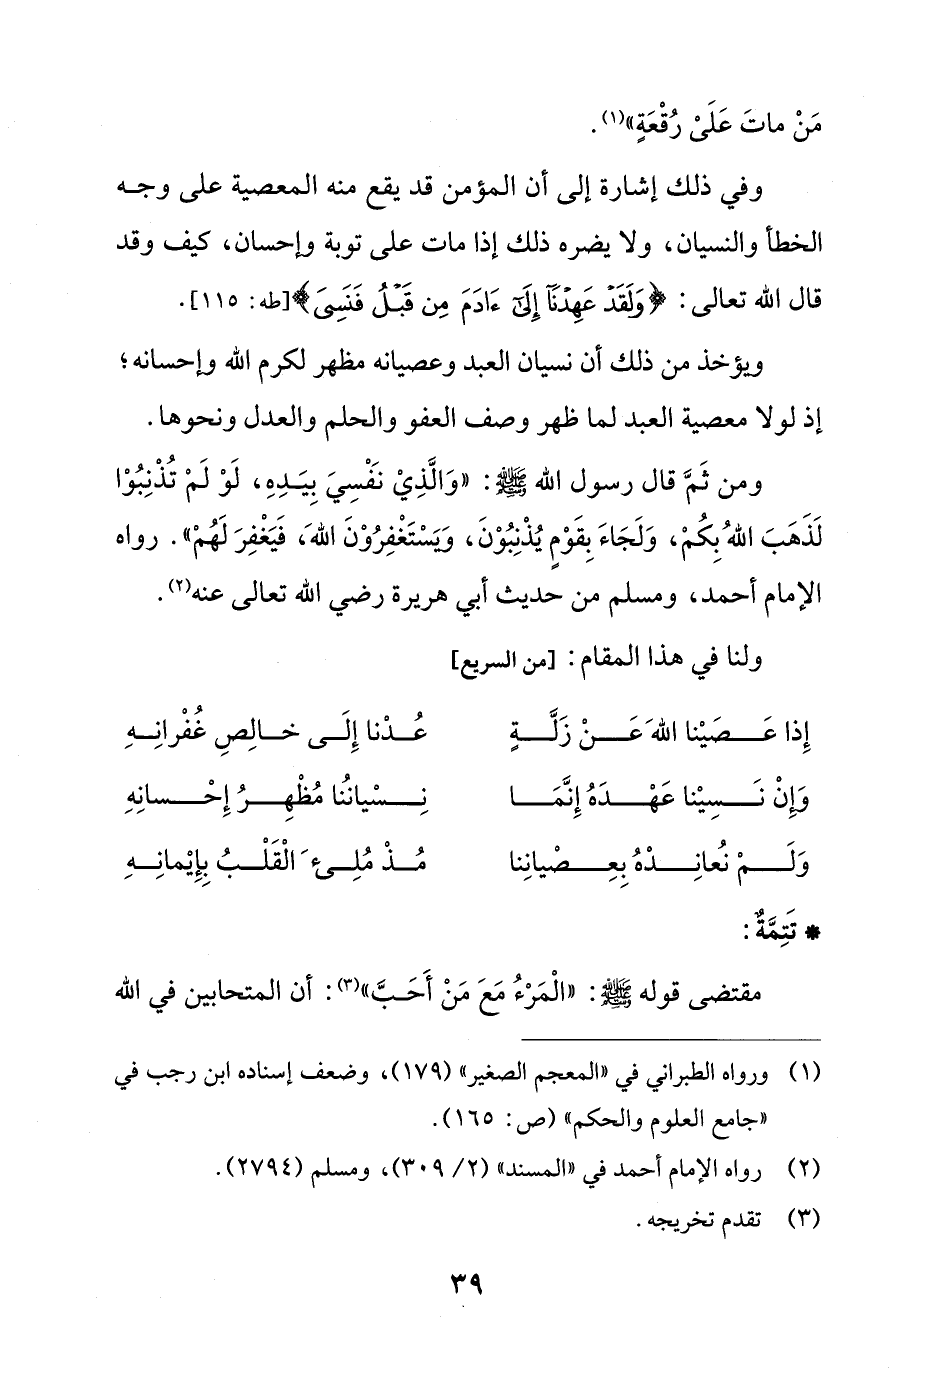 مَنْ ماتَ عَلَىْ رُقْعَةٍ»(١).
وفي ذلك إشارة إلى أن المؤمن قد يقع منه المعصية على وجه
الخطأ والنسيان، ولا يضره ذلك إذا مات على توبة وإحسان، كيف وقد
قال الله تعالى: ﴿وَلَقَدْ عَهِدْنَآ إِلَىٰٓ ءَادَمَ مِن قَبْلُ فَنَسِىَ﴾[طه: ١١٥].
ويؤخذ من ذلك أن نسيان العبد وعصيانه مظهر لكرم الله وإحسانه؛
إذ لولا معصية العبد لما ظهر وصف العفو والحلم والعدل ونحوها.
ومن ثَمَّ قال رسول الله ﷺ: «وَالَّذِيْ نَفْسِيَ بِيَدِهِ، لَوْ لَمْ تُذْنِبُوْا
لَذَهَبَ اللهُ بِكُمْ، وَلَجَاءَ بِقَوْمٍ يُذْنِبُوْنَ، وَيَسْتَغْفِرُوْنَ اللهَ، فَيَغْفِرَ لَهُمْ». رواه
الإمام أحمد، ومسلم من حديث أبي هريرة رضي الله تعالى عنه(٢).
ولنا في هذا المقام: [من السريع]
إِذا عَصَيْنا اللهَ عَنْ زَلَّةٍ عُدْنا إِلَى خالِصِ غُفْرانِهِ
وَإِنْ نَسِيْنا عَهْدَهُ إِنَّمَا نِسْيانُنا مُظْهِرُ إِحْسانِهِ
وَلَمْ نُعانِدْهُ بِعِصْيانِنا مُذْ مُلِىءَ الْقَلْبُ بِإِيْمانِهِ
* تَتِمَّةٌ:
مقتضى قوله ﷺ: «الْمَرْءُ مَعَ مَنْ أَحَبَّ»(٣): أن المتحابين في الله
(١) ورواه الطبراني في «المعجم الصغير» (١٧٩)، وضعف إسناده ابن رجب في
«جامع العلوم والحكم» (ص: ١٦٥).
(٢) رواه الإمام أحمد في «المسند» (٢/ ٣٠٩)، ومسلم (٢٧٩٤).
(٣) تقدم تخريجه.
٣٩